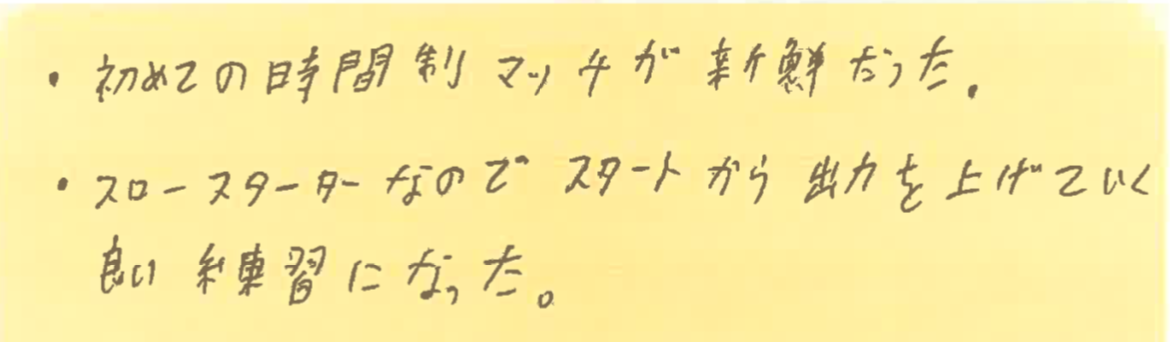 ・初めての時間制マッチが新鮮だった.
・スロースターターなので スタートから出力を上げていく
良い練習になった。